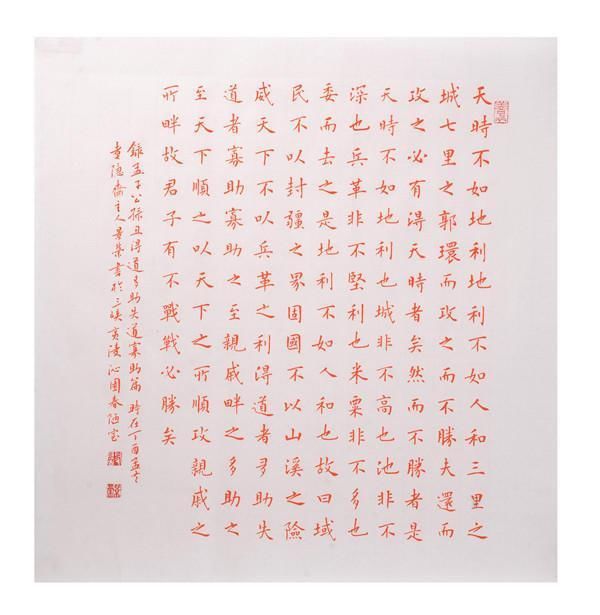 天時不如地利地利不如人和三里之
城七里之郭環而攻之而不勝夫還而
攻之必有得天時者矣然而不勝者是
天時不如地利也城非不高也池非不
深也兵革非不堅利也米粟非不多也
委而去之是地利不如人和也故曰域
民不以封疆之界固國不以山溪之險
威天下不以兵革之利得道者多助失
道者寡助寡助之至親戚畔之多助之
至天下順之以天下之所順攻親戚之
所畔故君子有不戰戰必勝矣
錄孟子公孫丑得道多助失道寡助篇 時在丁酉孟冬
隱齋主人景荣書於三峽夷陵沁園春陋室